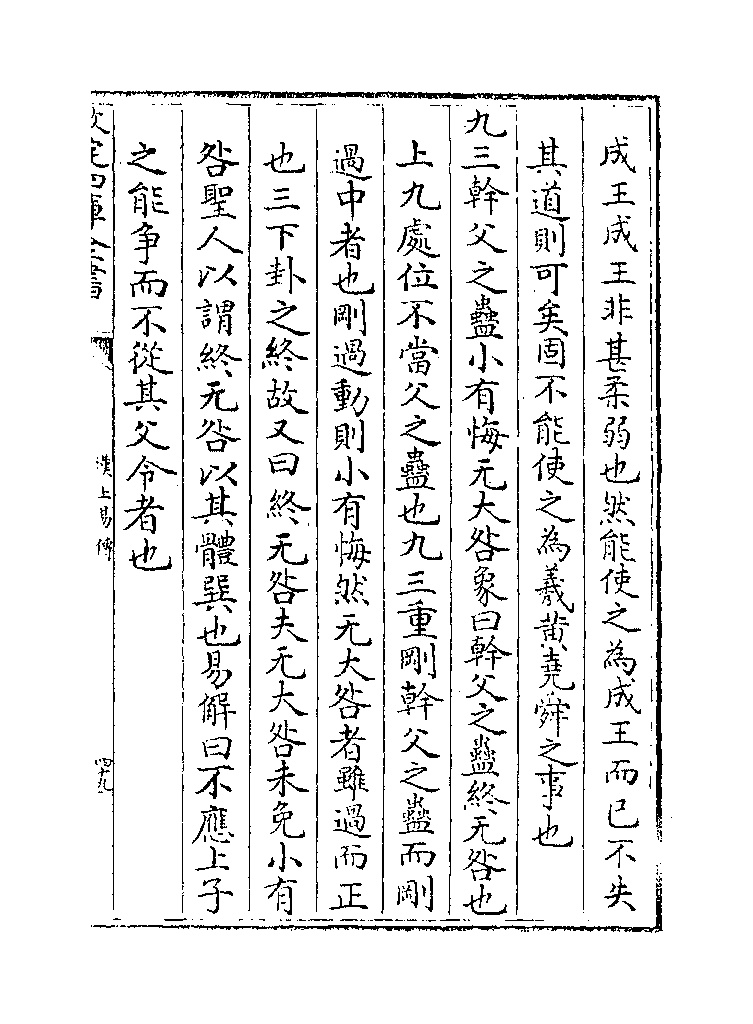 成王成王非甚柔弱也然能使之為成王而已不失
其道則可矣固不能使之為羲黄堯舜之事也
九三幹父之蠱小有悔无大咎象曰幹父之蠱終无咎也
上九處位不當父之蠱也九三重剛幹父之蠱而剛
過中者也剛過動則小有悔然无大咎者雖過而正
也三下卦之終故又曰終无咎夫无大咎未免小有
咎聖人以謂終无咎以其體巽也易解曰不應上子
之能争而不從其父令者也
欽定四庫全書
漢上易傳
四十九